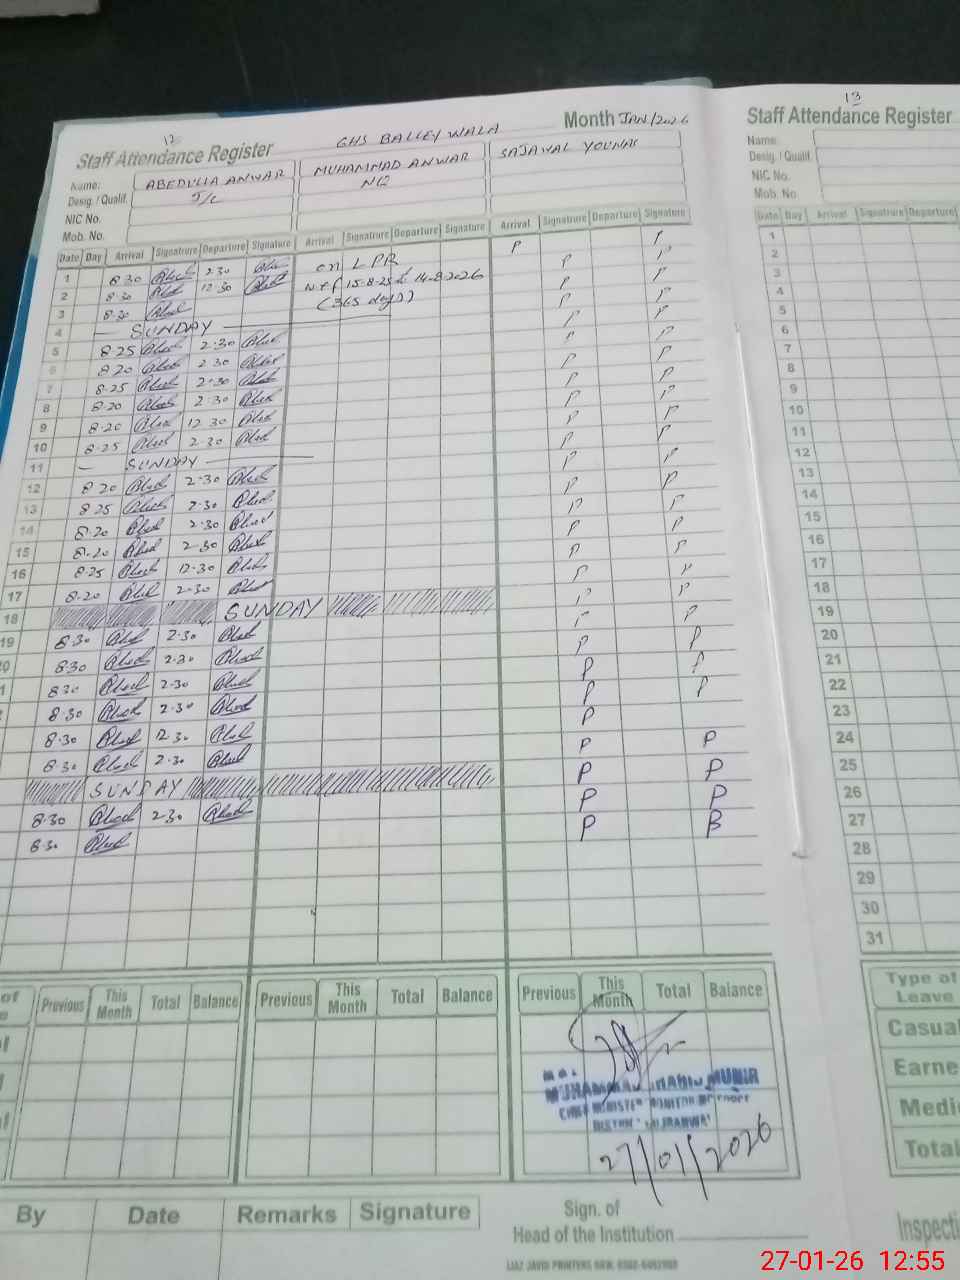 12
Staff Attendance Register GHS BALLEY WALA Month JAN/2026
Name: ABEDULLA ANWAR MUHAMMAD ANWAR SAJAWAL YOUNAS
Desig. / Qualif. J/C NQ
NIC No.
Mob. No.
Date Day Arrival Signatrure Departure Signature Arrival Signatrure Departure Signature Arrival Signatrure Departure Signature
P P
1 8:30 2:30 on LPR P
2 8:30 12:30 w.e.f 15-8-25 to 14-8-2026 P P
3 8:30 (365 days) P P
4 — SUNDAY — P P
5 8:25 2:30 P P
6 8:20 2:30 P P
7 8:25 2:30 P P
8 8:20 2:30 P P
9 8:20 12:30 P P
10 8:25 2:30 P P
11 — SUNDAY — P P
12 8:20 2:30 P P
13 8:25 2:30 P P
14 8:20 2:30 P P
15 8:20 2:30 P P
16 8:25 12:30 P P
17 8:20 2:30 P P
18 SUNDAY P P
19 8:30 2:30 P P
8:30 2:30 P P
8:30 2:30 P P
8:30 2:30 P
8:30 12:30 P P
8:30 2:30 P P
SUNDAY P P
8:30 2:30 P P
8:30
Previous This Month Total Balance Previous This Month Total Balance Previous This Month Total Balance
MUHAMMAD MUNIR
CHIEF MINISTER MONITOR
27/01/2026
By Date Remarks Signature
Sign. of
Head of the Institution
IJAZ JAVID PRINTERS
13
Staff Attendance Register
Name:
Desig. / Qualif.
NIC No.
Mob. No.
Date Day Arrival Signatrure Departure
1
2
3
4
5
6
7
8
9
10
11
12
13
14
15
16
17
18
19
20
21
22
23
24
25
26
27
28
29
30
31
Type of
Leave
Casual
Earne
Medi
Total
Inspecti
27-01-26 12:55